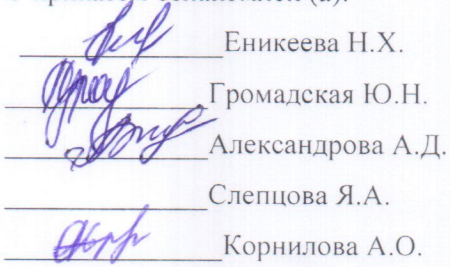 ознакомлен (а):
Еникеева Н.Х.
Громадская Ю.Н.
Александрова А.Д.
Слепцова Я.А.
Корнилова А.О.